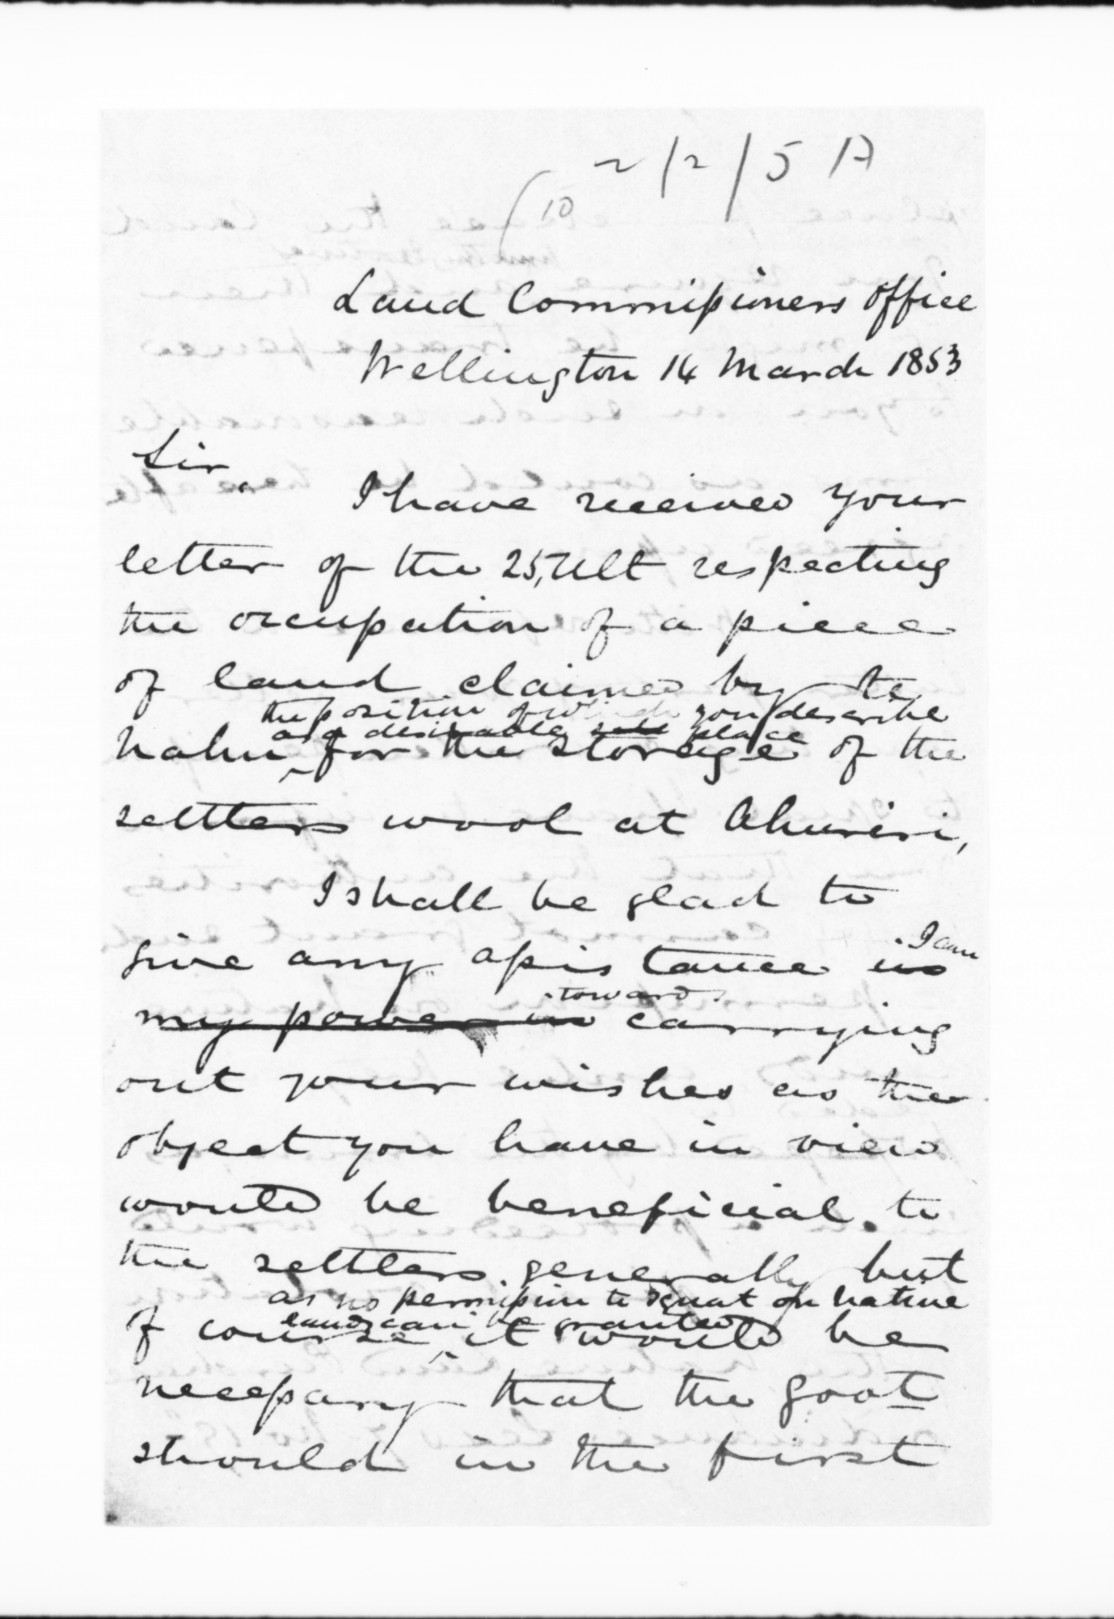 2/2/5 A
10
Land Commissioners office
Wellington 14 March 1853
Sir,
I have received your
letter of the 25, Ult respecting
the occupation of a piece
of land claimed by te
the position of which you describe
as a desirable place
hahu for the storage of the
settlers wool at Ahuriri,
I shall be glad to
give any assistance in I can
my power in toward carrying
out your wishes as the
object you have in view
would be beneficial to
the settlers generally but
as no permission to squat on native
lands can be granted
of course it would be
necessary that the Govt
should in the first